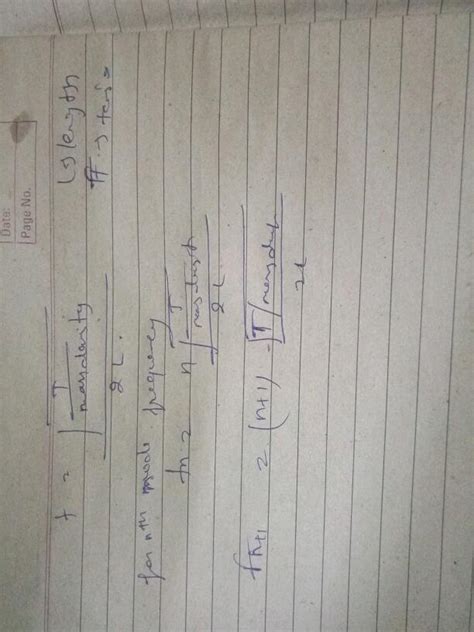 Date:
Page No.
f = √(T / mass density) / 2L.
L → length
T → tensio
for nth mode frequency
fn = n √(T / mass density) / 2L
fn+1 = (n+1) √(T/mass density) / 2L